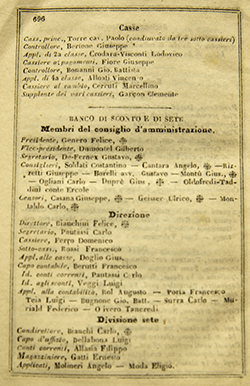 696
Casse
Cass. princ., Torre cav. Paolo (coadiuvato da tre sotto cassieri)
Controllore, Berione Giuseppe
Appl. di 2a classe, Crodara-Visconti Lodovico
Cassiere ai pagamenti, Fiore Giuseppe
Controllore, Bonanni Gio. Battista
Appl. di 4a classe, Allosti Vincenzo
Cassiere al cambio, Cerruti Marcellino
Supplente dei vari cassieri, Garçon Clemente
BANCO DI SCONTO E DI SETE.
Membri del consiglio d'amministrazione.
Presidente, Genero Felice, ✠
Vice-presidente, Dumontel Gilberto
Segretario, De-Fernex Gustavo, ✠
Consiglieri, Soldati Costantino — Cantara Angelo, ✠ — Riz-
zetti Giuseppe — Borelli avv. Gustavo — Montù Gius., ✠
— Ogliani Carlo — Duprè Gius., ✠ — Oldofredi-Tad-
dini conte Ercole
Censori, Casana Giuseppe, ✠ — Geisser Ulrico, ✠ — Mon-
taldo Carlo, ✠
Direzione
Direttore, Bianchini Felice, ✠
Segretario, Pautassi Carlo
Cassiere, Ferro Domenico
Sotto-cass., Rossi Francesco
Appl. alle casse, Doglio Gius.
Capo contabile, Berutti Francesco
Id. conti correnti, Pautassi Carlo
Id. agli sconti, Veggi Luigi
Appl. alla contabilità, Rol Augusto — Poria Francesco
Teia Luigi — Bugnone Gio. Batt. — Surra Carlo — Mu-
riald Federico — Olivero Tancredi
Divisione sete
Condirettore, Bianchi Carlo, ✠
Capo d'uffizio, Bellabons Luigi
Conti correnti, Allasia Filippo
Magazziniere, Gatti Ernesto
Applicati, Molineri Angelo — Moda Eligio.